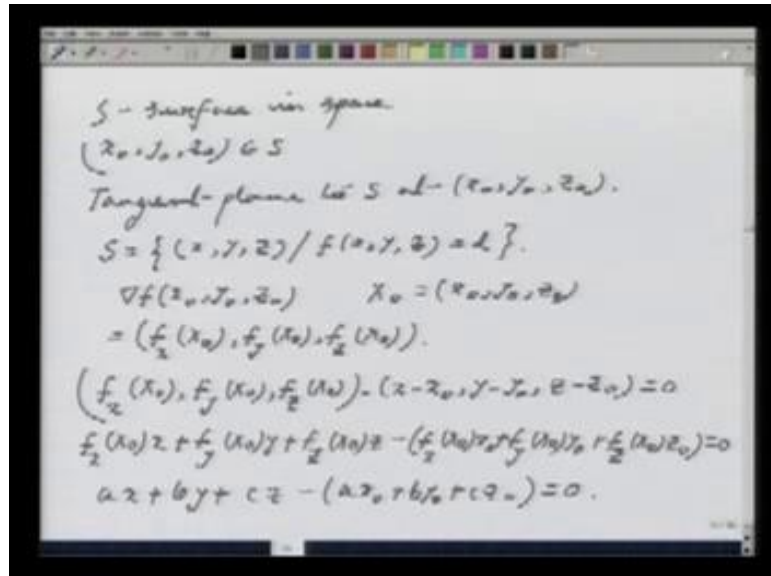 S - surface in space
(x₀, y₀, z₀) ∈ S
Tangent-plane to S at (x₀, y₀, z₀).
S = {(x, y, z) / f(x, y, z) = d}.
∇f(x₀, y₀, z₀) X₀ = (x₀, y₀, z₀)
= (f_x(X₀), f_y(X₀), f_z(X₀)).
(f_x(X₀), f_y(X₀), f_z(X₀)) · (x - x₀, y - y₀, z - z₀) = 0
f_x(X₀)x + f_y(X₀)y + f_z(X₀)z - (f_x(X₀)x₀ + f_y(X₀)y₀ + f_z(X₀)z₀) = 0
ax + by + cz - (ax₀ + by₀ + cz₀) = 0.